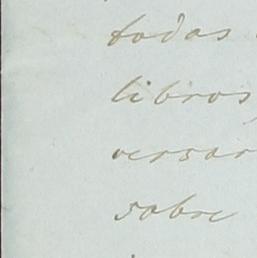 todas
libros,
versar
sobre